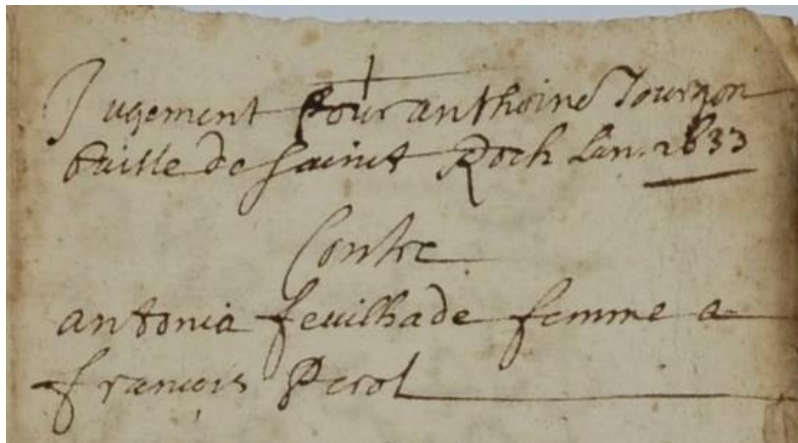 Jugement pour anthoine Tourgon
baille de saint Roch Lan. 1633
Contre
antonia feuilhade femme a
françois Perol